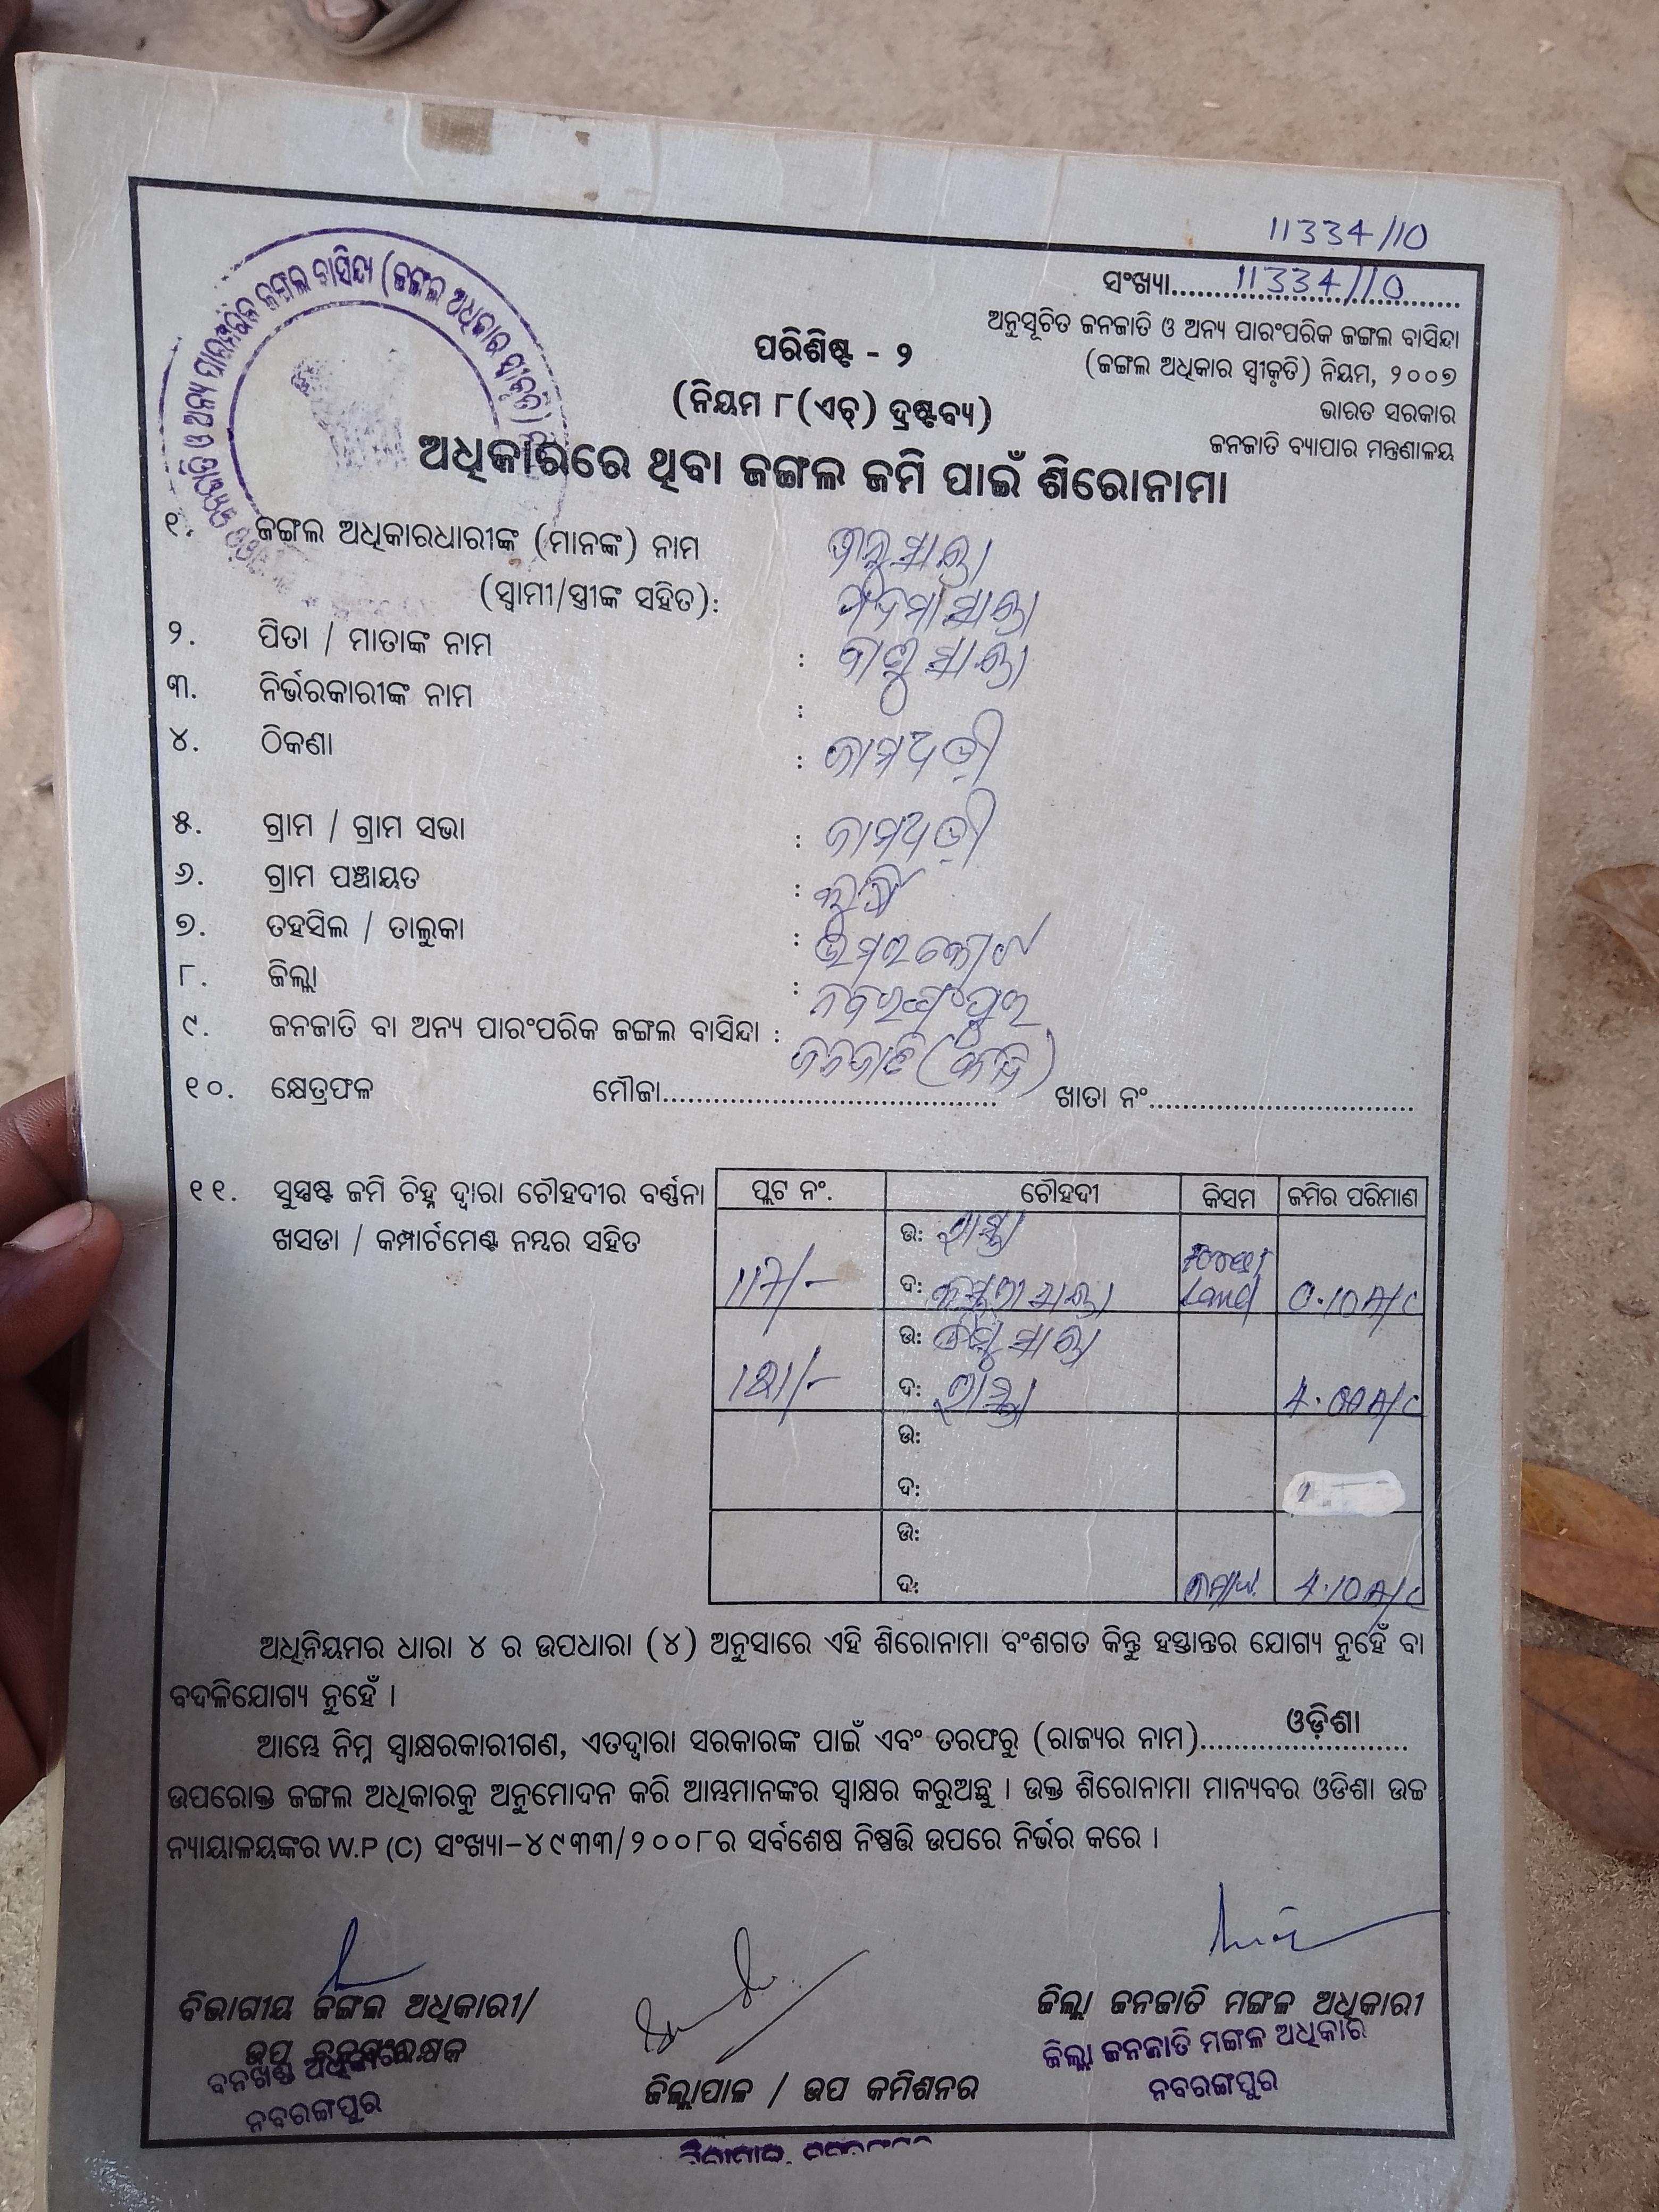 11334/10
ସଂଖ୍ୟା..........11334/10..........
ଅନୁସୂଚିତ ଜନଜାତି ଓ ଅନ୍ୟ ପାରଂପରିକ ଜଙ୍ଗଲ ବାସିନ୍ଦା
(ଜଙ୍ଗଲ ଅଧିକାର ସ୍ୱୀକୃତି) ନିୟମ, ୨୦୦୭
ଭାରତ ସରକାର
ଜନଜାତି ବ୍ୟାପାର ମନ୍ତ୍ରଣାଳୟ
ପରିଶିଷ୍ଟ - ୨
(ନିୟମ ୮(ଏଚ୍) ଦ୍ରଷ୍ଟବ୍ୟ)
ଅଧିକାରରେ ଥିବା ଜଙ୍ଗଲ ଜମି ପାଇଁ ଶିରୋନାମା
୧. ଜଙ୍ଗଲ ଅଧିକାରଧାରୀଙ୍କ (ମାନଙ୍କ) ନାମ
(ସ୍ୱାମୀ/ସ୍ତ୍ରୀଙ୍କ ସହିତ):
୨. ପିତା / ମାତାଙ୍କ ନାମ :
୩. ନିର୍ଭରକାରୀଙ୍କ ନାମ :
୪. ଠିକଣା :
୫. ଗ୍ରାମ / ଗ୍ରାମ ସଭା :
୬. ଗ୍ରାମ ପଞ୍ଚାୟତ :
୭. ତହସିଲ / ତାଲୁକା : ଉମରକୋଟ
୮. ଜିଲ୍ଲା : ନବରଂଗପୁର
୯. ଜନଜାତି ବା ଅନ୍ୟ ପାରଂପରିକ ଜଙ୍ଗଲ ବାସିନ୍ଦା : ଜନଜାତି
୧୦. କ୍ଷେତ୍ରଫଳ ମୌଜା.................... ଖାତା ନଂ....................
୧୧. ସୁସ୍ପଷ୍ଟ ଜମି ଚିହ୍ନ ଦ୍ୱାରା ଚୌହଦୀର ବର୍ଣ୍ଣନା
ଖସଡା / କମ୍ପାର୍ଟମେଣ୍ଟ ନମ୍ବର ସହିତ
ପ୍ଲଟ ନଂ. ଚୌହଦୀ କିସମ ଜମିର ପରିମାଣ
ଉ: ରାସ୍ତା
117/- ଦ: Forest Land 0.10 A/C
ଉ:
ଦ: ରାସ୍ତା
ଉ:
ଦ:
ଉ:
ଦ: 4.10 A/C
ଅଧିନିୟମର ଧାରା ୪ ର ଉପଧାରା (୪) ଅନୁସାରେ ଏହି ଶିରୋନାମା ବଂଶଗତ କିନ୍ତୁ ହସ୍ତାନ୍ତର ଯୋଗ୍ୟ ନୁହେଁ ବା
ବଦଳିଯୋଗ୍ୟ ନୁହେଁ ।
ଆମ୍ଭେ ନିମ୍ନ ସ୍ୱାକ୍ଷରକାରୀଗଣ, ଏତଦ୍ୱାରା ସରକାରଙ୍କ ପାଇଁ ଏବଂ ତରଫରୁ (ରାଜ୍ୟର ନାମ)........ଓଡ଼ିଶା........
ଉପରୋକ୍ତ ଜଙ୍ଗଲ ଅଧିକାରକୁ ଅନୁମୋଦନ କରି ଆମ୍ଭମାନଙ୍କର ସ୍ୱାକ୍ଷର କରୁଅଛୁ । ଉକ୍ତ ଶିରୋନାମା ମାନ୍ୟବର ଓଡିଶା ଉଚ୍ଚ
ନ୍ୟାୟାଳୟଙ୍କର W.P (C) ସଂଖ୍ୟା-୪୯୩୩/୨୦୦୮ର ସର୍ବଶେଷ ନିଷ୍ପତ୍ତି ଉପରେ ନିର୍ଭର କରେ ।
ବିଭାଗୀୟ ଜଙ୍ଗଲ ଅଧିକାରୀ/
ଉପ ବନସଂରକ୍ଷକ
ବନଖଣ୍ଡ ଅଧିକାରୀ
ନବରଙ୍ଗପୁର
ଜିଲ୍ଲାପାଳ / ଉପ କମିଶନର
ଜିଲ୍ଲା ଜନଜାତି ମଙ୍ଗଳ ଅଧିକାରୀ
ଜିଲ୍ଲା ଜନଜାତି ମଙ୍ଗଳ ଅଧିକାରୀ
ନବରଙ୍ଗପୁର